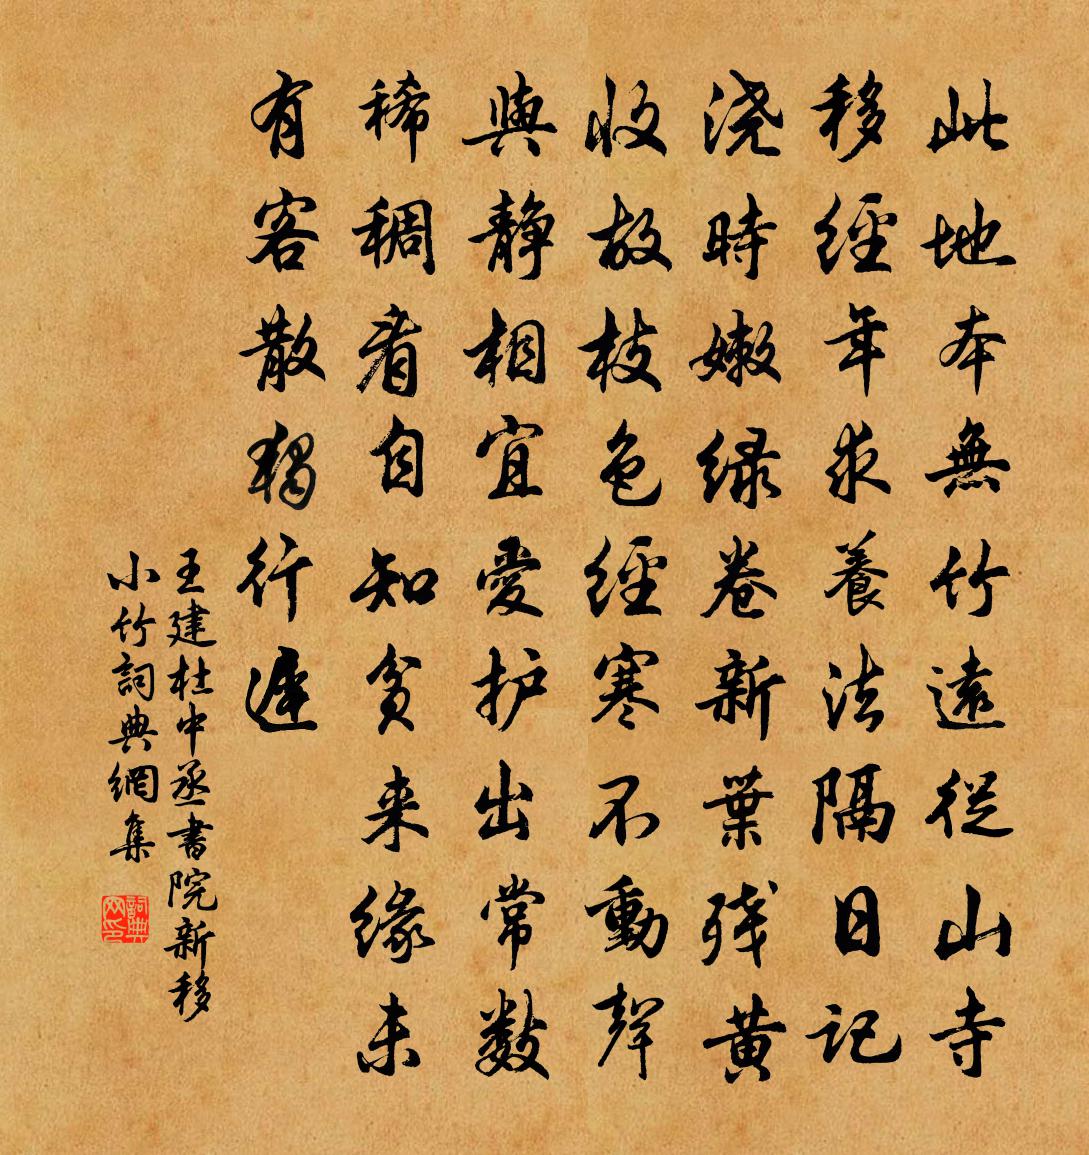 此地本無竹遠從山寺
移經年求養法隔日記
浇時嫩緑卷新葉残黄
收故枝色經寒不動聲
與静相宜愛护出常数
稀稠看自知貧来缘未
有客散獨行遲
王建杜中丞書院新移
小竹詞典網集
詞典
网印